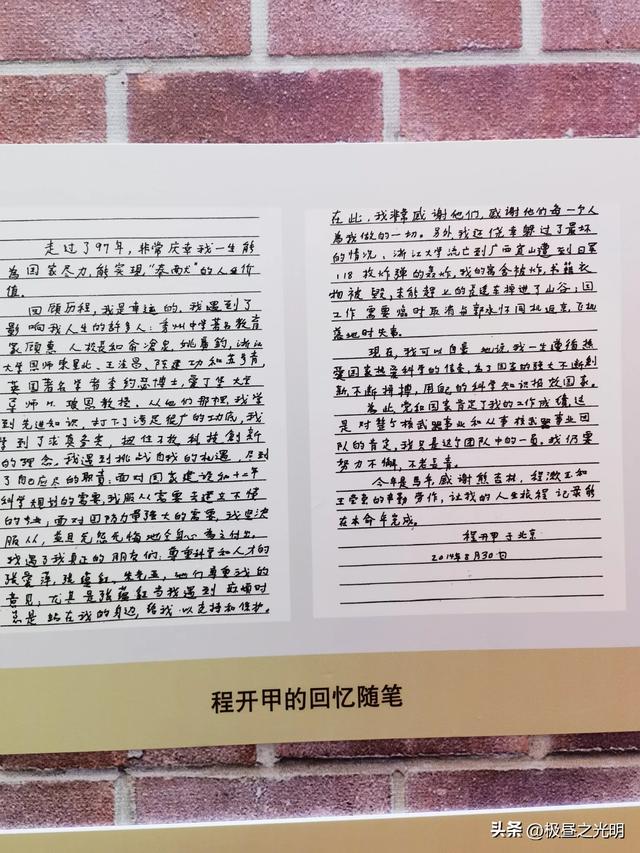 走过了97年，非常庆幸我一生能
为国家尽力，能实现“泰西大”的人生价
值。
回顾历程，我是幸运的，我遇到了
影响我人生的许多人：秀州中学著名教育
家顾惠人校长和俞沧泉、姚广钧，浙江
大学恩师束星北、王淦昌、陈建功和苏步青，
英国著名学者李约瑟博士，爱丁堡大学
导师M.玻恩教授。从他们那里，我学
到先进知识，打下了宽广的功底，我
学到了求真务实、扭住不放科技创新
的理念。我遇到挑战自我的机遇，尽到
了自己应尽的职责，面对国家建设和十二年
科学规划的需要，我服从需要去建立不懂
的专业；面对国防力量强大的需要，我坚决
服从，并且无怨无悔地全身心为之付出。
我遇了我真正的朋友们：尊重科学和人才的
张爱萍、张蕴钰、朱光亚，他们尊重我的
意见，尤其是张蕴钰当我遇到困惑时
总是站在我的身边，给我以支持和保护。
在此，我非常感谢他们，感谢他们每一个人
为我做的一切。另外我还侥幸躲过了最坏
的情况，浙江大学流亡到广西宜山遭到日军
118枚炸弹的轰炸，我的宿舍被炸，书籍衣
物被毁，未能赶上的是这车掉进了山谷；因
工作需要临时取消与郭永怀同机返京，飞机
落地时失事。
现在，我可以自豪地说，我一生遵循热
爱国家热爱科学的信念，为了国家的强大不断创
新，不断拼搏，用自己的科学知识报效国家。
为此，党和国家肯定了我的工作成绩，这
是对整个核武器事业和从事核武器事业团
队的肯定，我只是这个团队中的一员，我仍要
努力不懈，不老常青。
今年是马年，感谢熊杏林、程漱玉和
王莹莹的辛勤劳作，让我的人生旅程记录能
在本命年完成。
程开甲于北京
2014年8月30日
程开甲的回忆随笔
头条 @极昼之光明